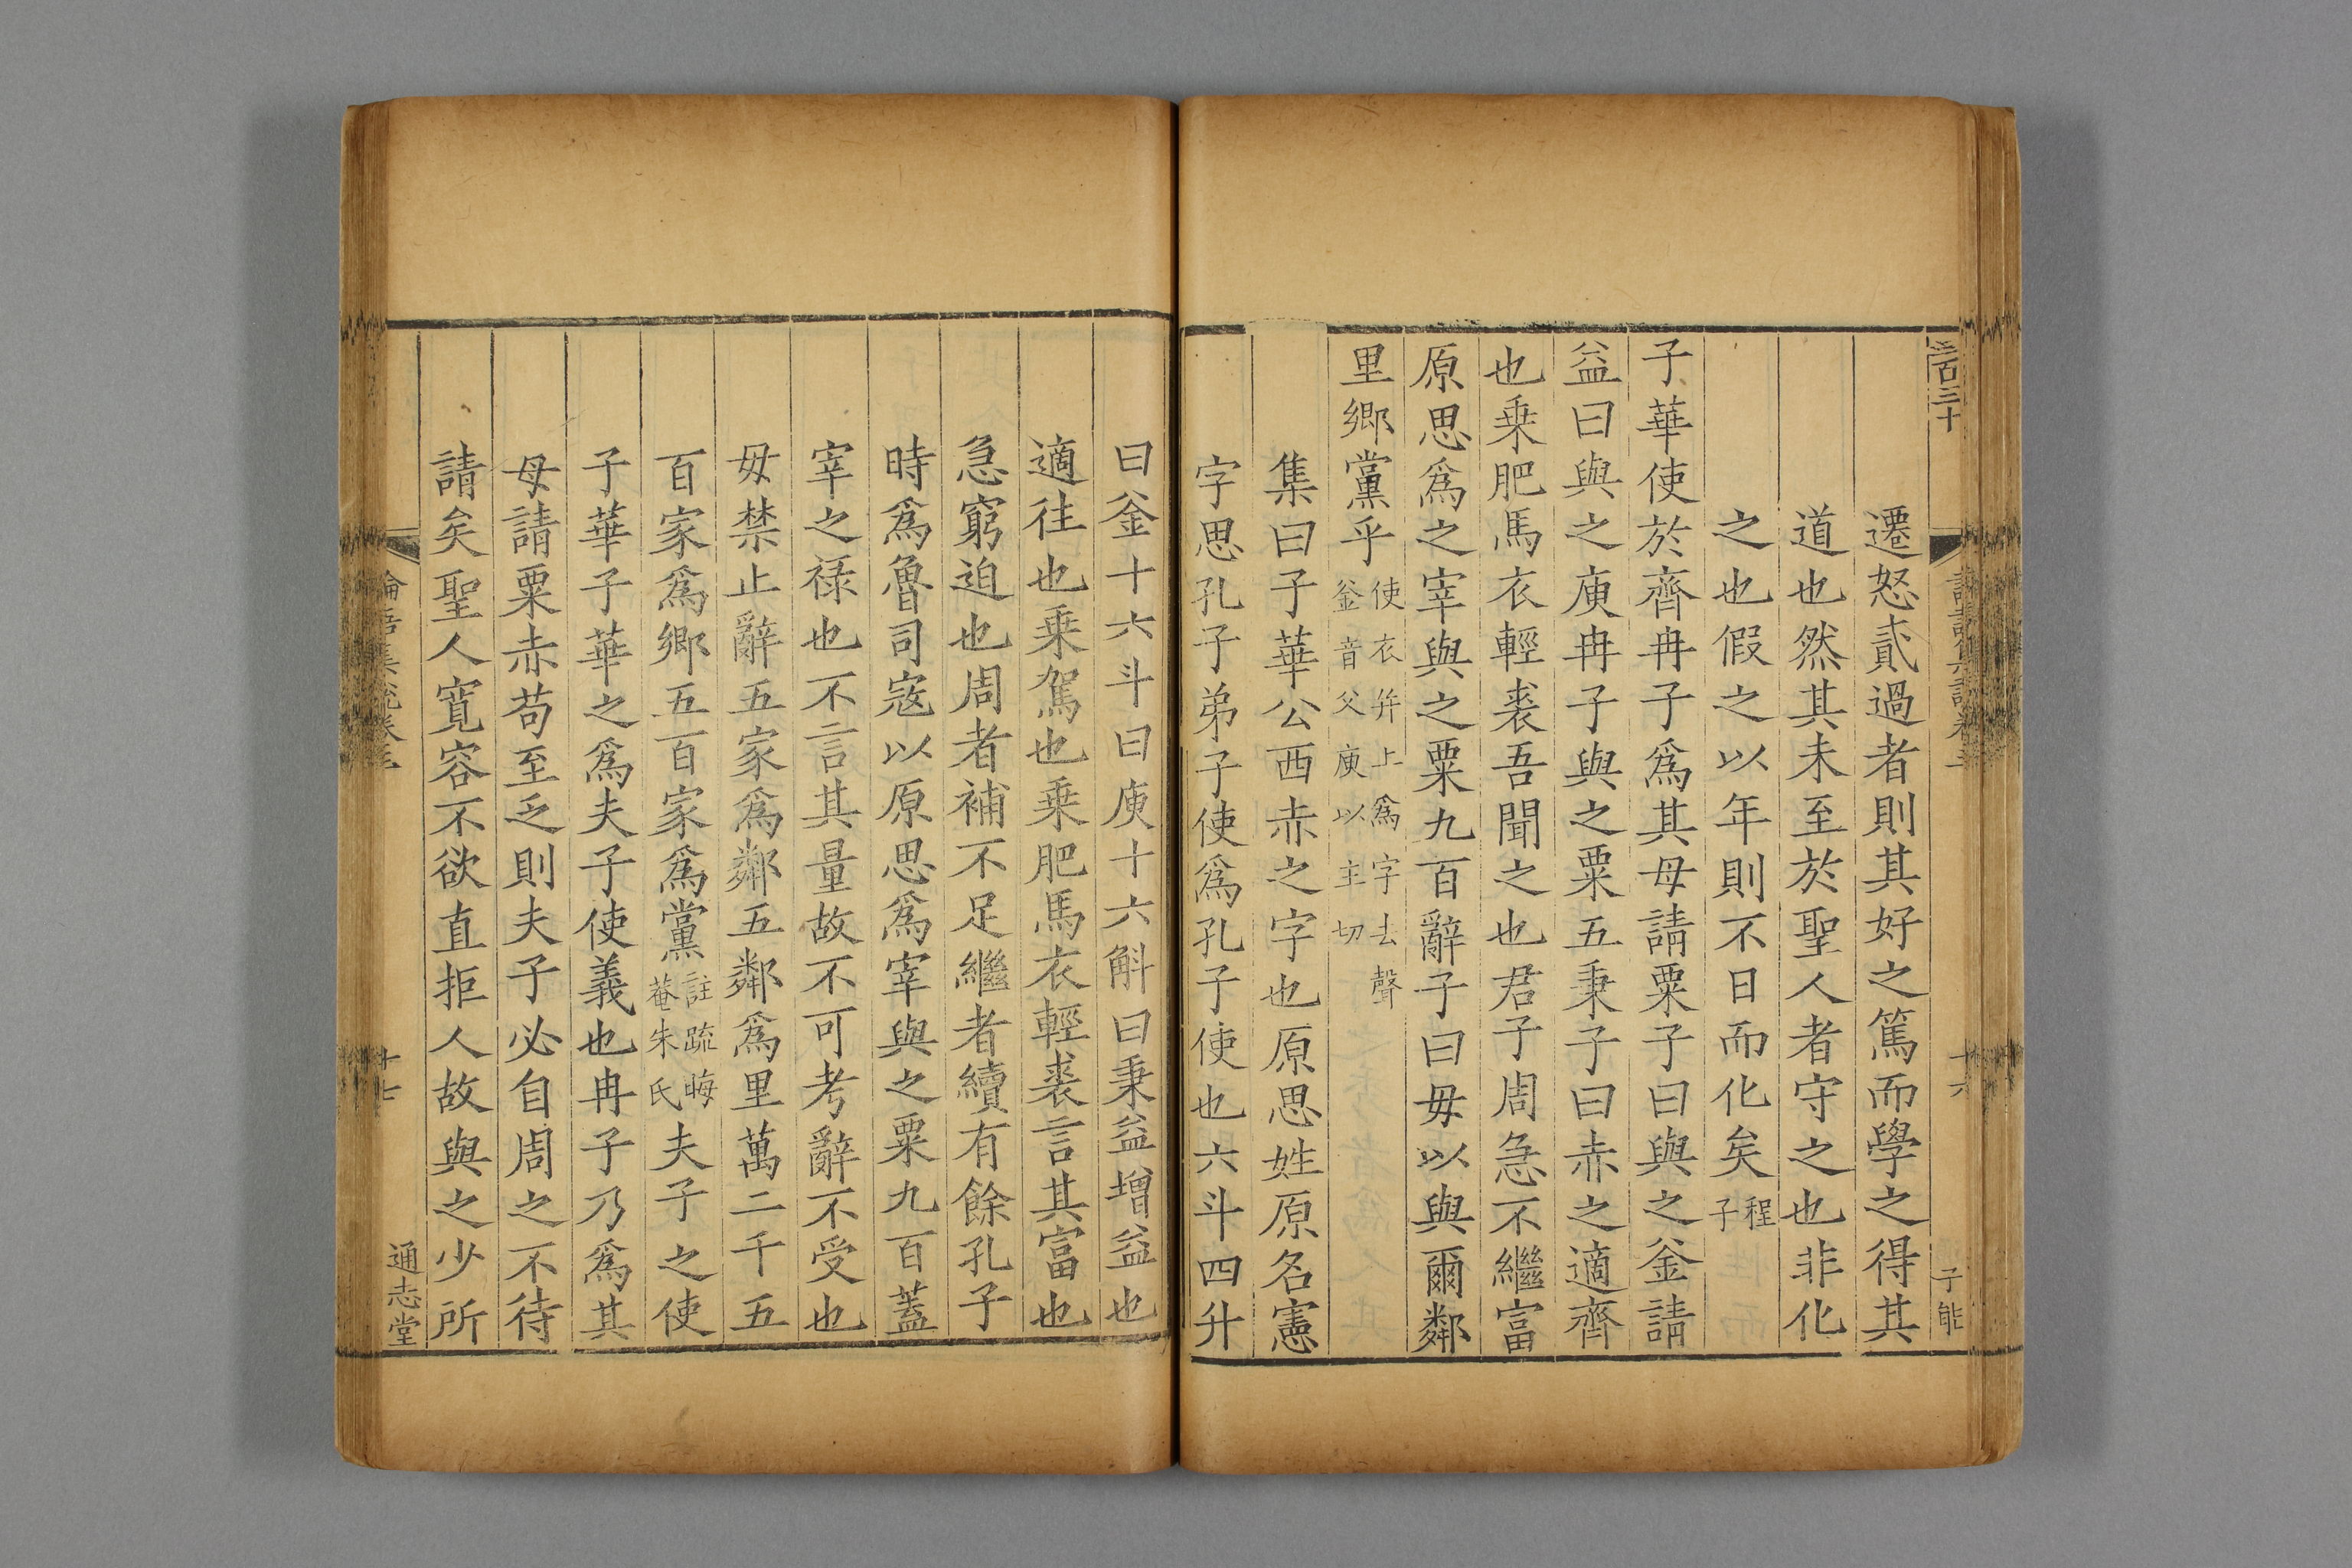 三百三十
十六
子能
遷怒貳過者則其好之篤而學之得其
道也然其未至於聖人者守之也非化
之也假之以年則不日而化矣程子
子華使於齊冉子爲其母請粟子曰與之釜請
益曰與之庾冉子與之粟五秉子曰赤之適齊
也乗肥馬衣輕裘吾聞之也君子周急不繼富
原思爲之宰與之粟九百辭子曰毋以與爾鄰
里鄉黨乎使衣并上爲字去聲釜音父庾以主切
集曰子華公西赤之字也原思姓原名憲
字思孔子弟子使爲孔子使也六斗四升
曰釜十六斗曰庾十六斛曰秉益增益也
適往也乗駕也乗肥馬衣輕裘言其富也
急窮迫也周者補不足繼者續有餘孔子
時爲魯司寇以原思爲宰與之粟九百蓋
宰之禄也不言其量故不可考辭不受也
毋禁止辭五家爲鄰五鄰爲里萬二千五
百家爲鄉五百家爲黨註疏晦菴朱氏夫子之使
子華子華之爲夫子使義也冉子乃爲其
母請粟赤苟至乏則夫子必自周之不待
請矣聖人寛容不欲直拒人故與之少所
論語集說卷三
十七
通志堂